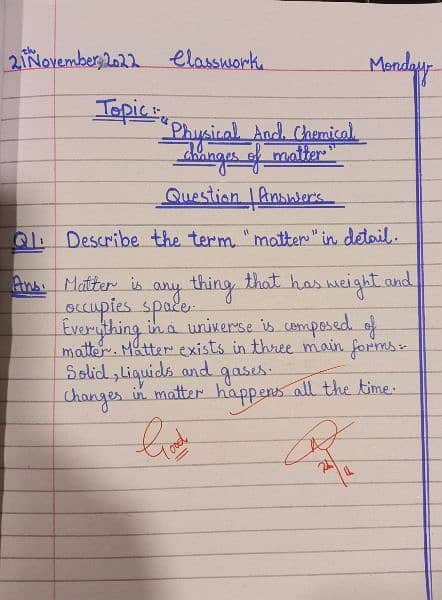 21th November, 2022 Classwork Monday
Topic:-
"Physical And Chemical
changes of matter"
Question | Answers
Q1: Describe the term "matter" in detail.
Ans: Matter is any thing that has weight and
occupies space.
Everything in a universe is composed of
matter. Matter exists in three main forms:-
Solid, Liquids and gases.
Changes in matter happens all the time.
Good